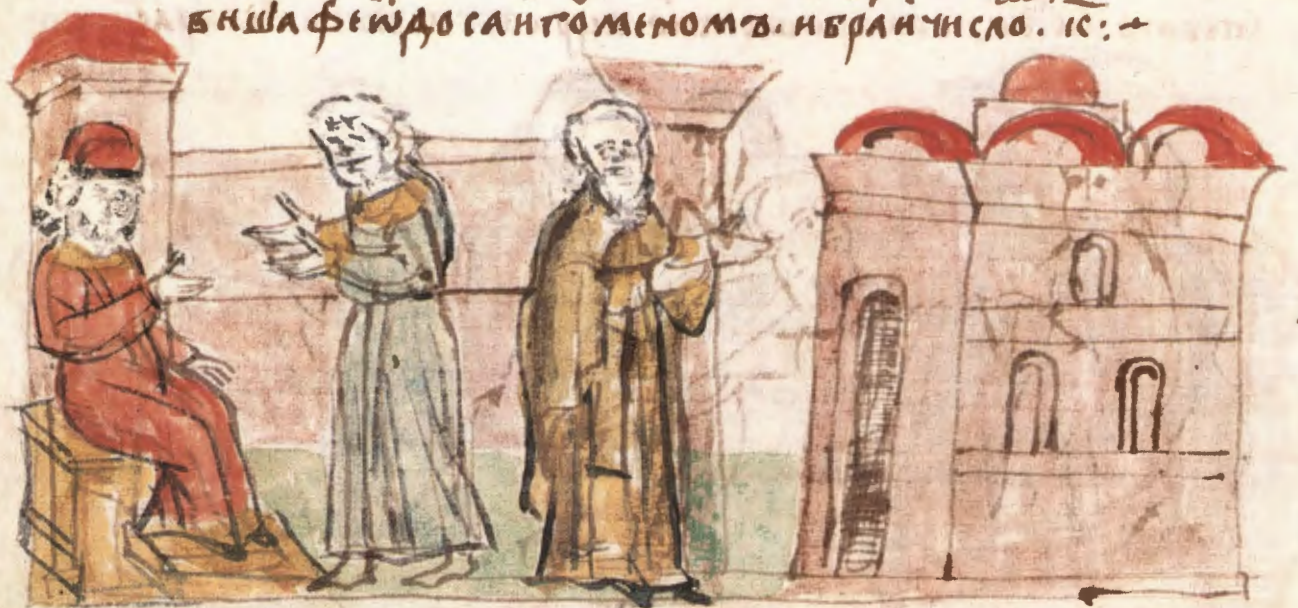 виша феѡдоса игоменомъ. и браи число. к:~